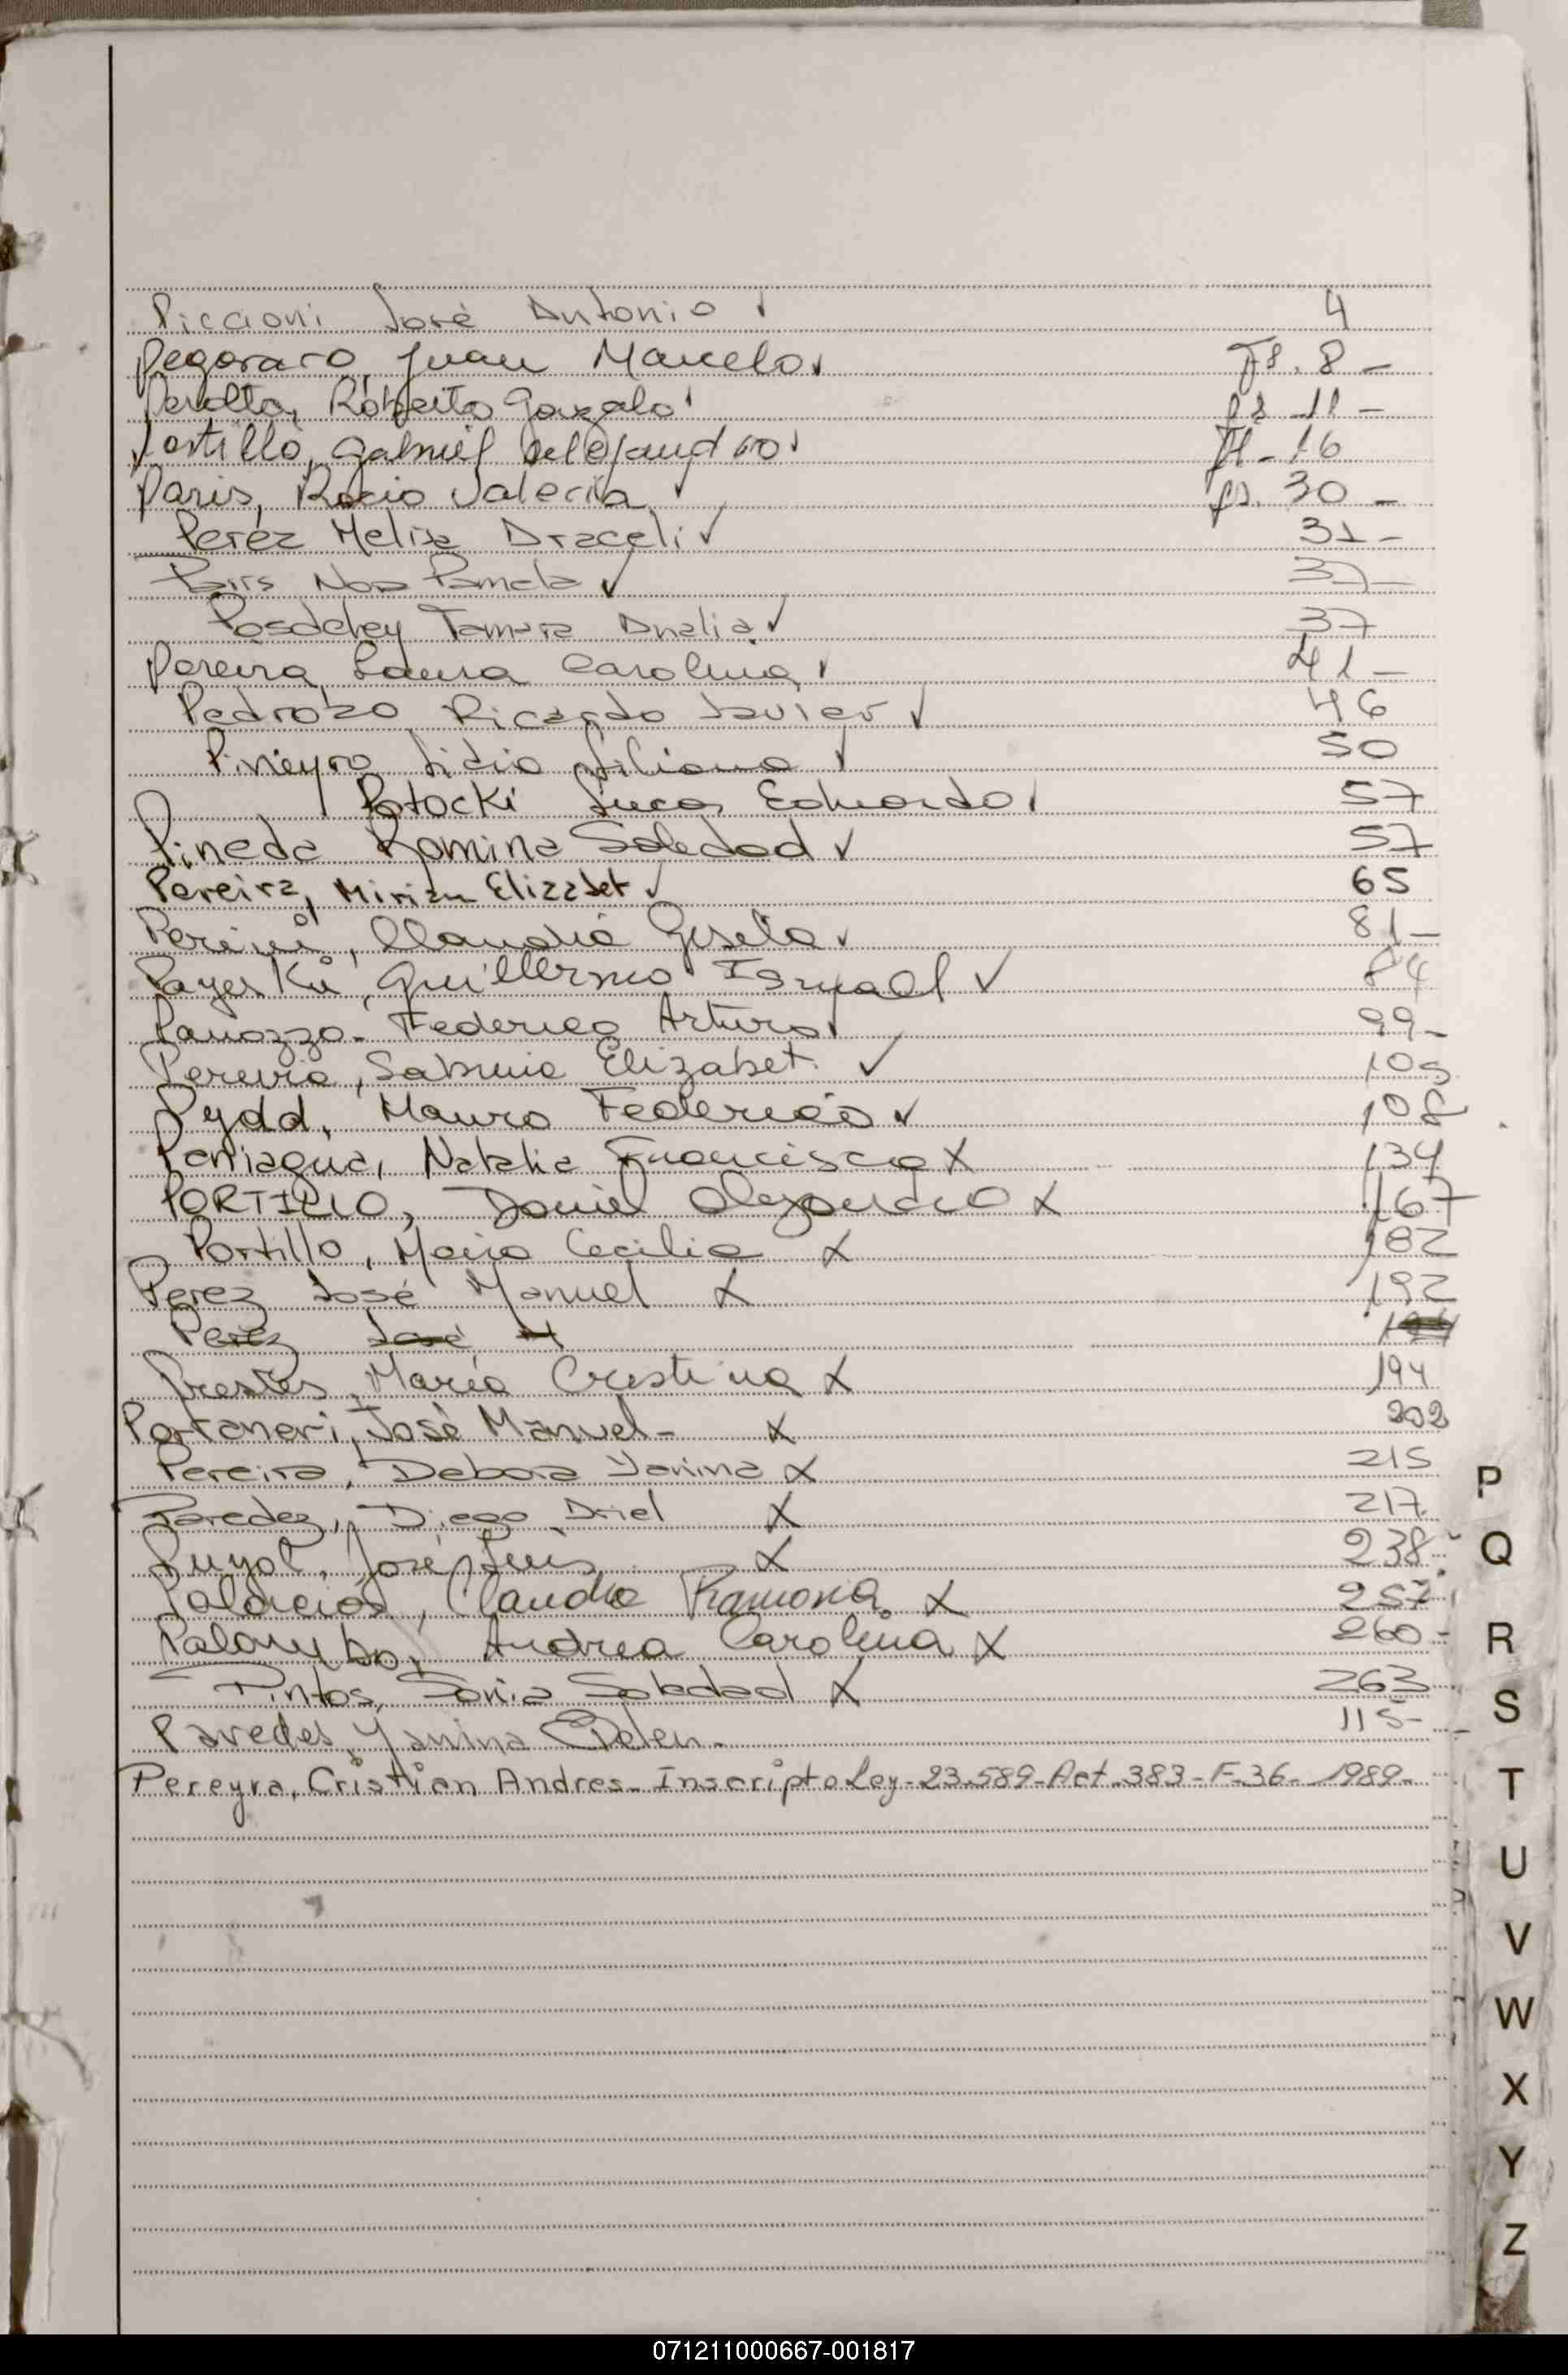 Piccioni José Antonio ✓ 4
Pegoraro, Juan Marcelo ✓ Fs. 8 -
Peralta, Roberto Gonzalo ✓ fs 11 -
Portillo, Gabriel Alejandro ✓ 16
Paris, Rocio Valeria ✓ fs. 30 -
Peréz Melisa Araceli ✓ 31 -
Noa Pamela ✓ 37 -
Tamara Analia ✓ 37
Pereira, Laura Carolina ✓ 41 -
Pedrozo Ricardo Javier ✓ 46
Piñeyro Lidia Liliana ✓ 50
Potocki Lucas Eduardo ✓ 57
Pineda Romina Soledad ✓ 57
Pereira, Mirian Elizabet ✓ 65
Perini, Claudia Gisela ✓ 81 -
Guillermo Ismael ✓ 84
Panozzo - Federico Arturo ✓ 99 -
Pereira, Sabrina Elizabet ✓ 105
Pydd, Mauro Federico ✓ 108
Paniagua, Natalia Francisca X 134
PORTILLO, Daniel Alejandro X 167
Portillo, María Cecilia X 182
Perez José Manuel X 192
Perez José M
Prestes, María Cristina X 194
Portaneri, José Manuel - X 202
Pereira, Debora Yanina X 215
Paredez, Diego Ariel X 217
Puyol, José Luis X 238
Palacios, Claudia Ramona X 257
Palombo, Andrea Carolina X 260 -
Pintos, Sonia Soledad X 263
Paredes, Yanina Belen - 115 -
Pereyra, Cristian Andres - Inscripto Ley - 23.589 - Act. 383 - F-36 - 1989 -
P
Q
R
S
T
U
V
W
X
Y
Z
071211000667-001817